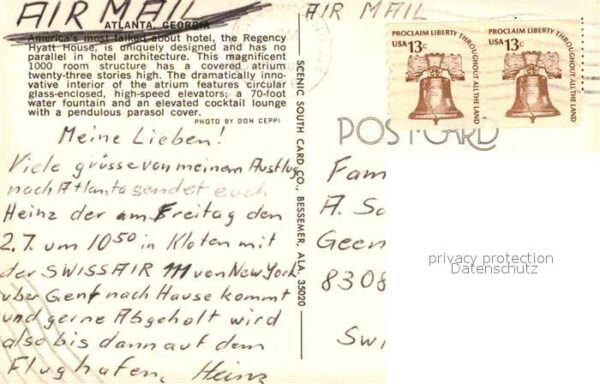 AIR MAIL
ATLANTA, GEORGIA
America's most talked about hotel, the Regency
Hyatt House, is uniquely designed and has no
parallel in hotel architecture. This magnificent
1000 room structure has a covered atrium
twenty-three stories high. The dramatically inno-
vative interior of the atrium features circular
glass-enclosed, high-speed elevators; a 70-foot
water fountain and an elevated cocktail lounge
with a pendulous parasol cover.
PHOTO BY DON CEPPI
Meine Lieben!
Viele grüsse von meinem Ausflug
nach Atlanta sendet euch
Heinz der am Freitag den
2.7. um 10⁵⁰ in Kloten mit
der SWISSAIR 111 von New York
über Genf nach Hause kommt
und gerne Abgeholt wird
also bis dann auf dem
Flughafen. Heinz
SCENIC SOUTH CARD CO., BESSEMER, ALA. 35020
AIR MAIL
PROCLAIM LIBERTY THROUGHOUT ALL THE LAND
USA 13c
PROCLAIM LIBERTY THROUGHOUT ALL THE LAND
USA 13c
POST CARD
Fam
A. Sc
Geen
8308
Swi
privacy protection
Datenschutz